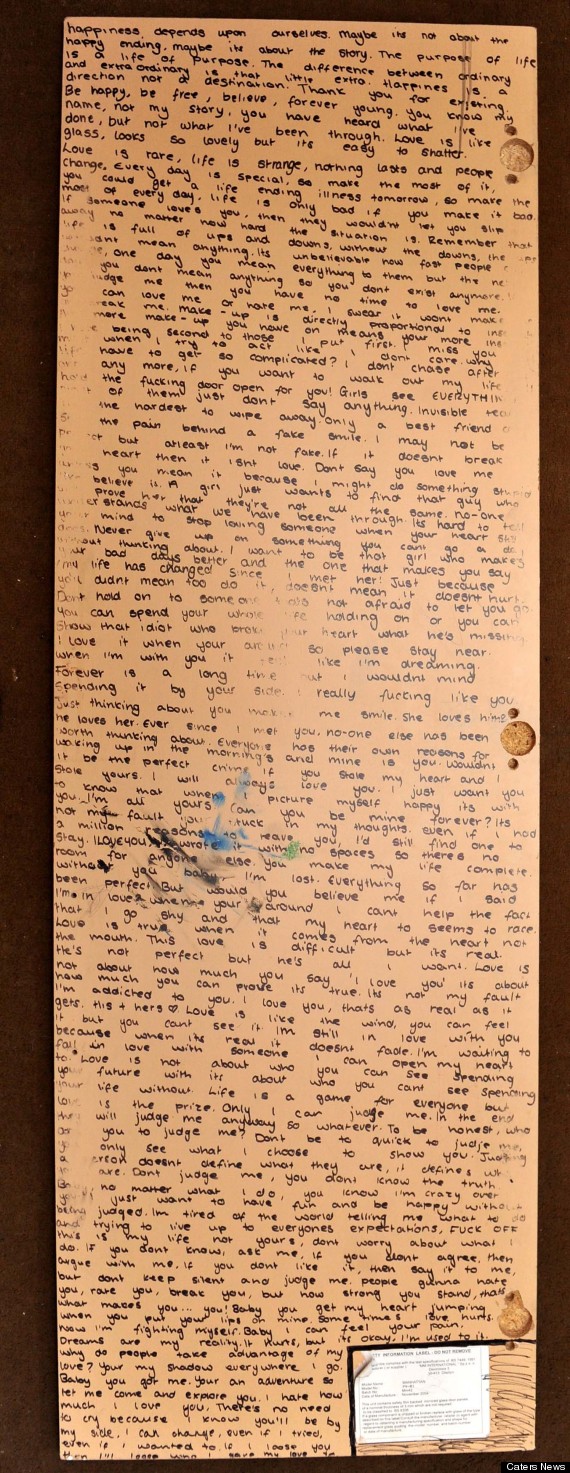 happiness depends upon ourselves. Maybe its not about the
happy ending, maybe its about the story. The purpose of life
is a life of purpose. The difference between ordinary
and extraordinary is that little extra. Happines is a
direction not a destination. Thank you for existing.
Be happy, be free, believe, forever young. You know my
name, not my story, you have heard what I've
done, but not what I've been through. Love is like
glass, looks so lovely but its easy to shatter.
Love is rare, life is strange, nothing lasts and people
change. Every day is special, so make the most of it,
you could get a life ending illness tomorrow, so make the
most of every day. life is only bad if you make it bad.
If someone loves you, then they wouldnt let you slip
away no matter how hard the situation is. Remember that
life is full of ups and downs, without the downs, the ups
mean anything. Its unbelievable how fast people
one day you mean everything to them but the
you dont mean anything so you dont exist anymore.
judge me then you have no time to love me.
can love me or hate me, I swear it wont make
break me. make-up is directly proportional to
more make-up you have on means your more
being second to those I put first. I miss you
when I try to act like I dont care. why
have to get so complicated? I dont chase after
any more, if you want to walk out my life
the fucking door open for you! Girls see
of them just dont say anything. Invisible
the hardest to wipe away. Only a best friend
the pain behind a fake smile. I may not be
but atleast I'm not fake. If it doesnt break
heart then it isnt love. Dont say you love me
you mean it because I might do something
believe it. A girl just wants to find that guy who
prove her that they're not all the same. no-one
what we have been through. Its hard to tell
mind to stop loving someone when your heart
Never give up on something you cant go a day
without thinking about. I want to be that girl who makes
your bad days better and the one that makes you say
my life has changed since I met her! Just because
you didnt mean too do it, doesnt mean it doesnt hurt.
Dont hold on to someone not afraid to let you go
You can spend your whole life holding on or you can
show that idiot who broke your heart what he's missing
I love it when your so please stay near.
when I'm with you it like I'm dreaming.
Forever is a long time but I wouldnt mind
spending it by your side. I really fucking like you
Just thinking about you me smile. She loves him
he loves her. Ever since I met you, no-one else has been
worth thinking about. Everyone has their own reasons for
waking up in the morning's and mine is you. Wouldnt
it be the perfect crime if you stole my heart and I
stole yours. I will always love you. I just want you
to know that when I picture myself happy its with
you. I'm all yours. Can you be mine forever? Its
not my fault you stuck in my thoughts. even if I had
a million reasons to leave you, I'd still find one to
stay. ILOVEYOU wrote it with spaces so theres no
room for anyone else. you make my life complete.
without you baby I'm lost. Everything so far has
been perfect. But would you believe me if I said
I'm in love? when your around I cant help the fact
that I go shy and that my heart to seems to race.
Love is true when it comes from the heart not
the mouth. This love is difficult but its real.
He's not perfect but he's all I want. Love is
not about how much you say 'I love you' its about
how much you can prove its true. Its not my fault
I'm addicted to you. I love you, thats as real as it
gets. his + hers ♡ Love is like the wind, you can feel
it but you cant see it. I'm still in love with you
because when its real it doesnt fade. I'm waiting to
fall in love with someone I can open my heart
to. Love is not about who you can see spending
your future with its about who you cant see spending
your life without. Life is a game for everyone but
love is the prize. Only I can judge me. In the end
they will judge me anyway so whatever. To be honest, who
are you to judge me? Dont be to quick to judje me,
you only see what I choose to show you. Judging
a person doesnt define what they are, it defines
are. Don't judge me, you dont know the truth
no matter what I do, you know I'm crazy over
just want to have fun and be happy without
being judged. Im tired of the world telling me what to do
and trying to live up to everyones expectations, FUCK OFF
this is my life not yours, dont worry about what I
do. If you dont know, ask me, if you dont agree, then
argue with me, if you dont like it, then say it to me,
but dont keep silent and judge me. people gunna hate
you, rate you, break you, but how strong you stand, thats
what makes you... you! Baby you get my heart jumping
when you put your lips on mine. Some times love hurts.
Now I'm fighting myself. Baby I can feel your pain.
Dreams are my reality. It hurts but its okay, I'm used to it.
why do people take advantage of my
love? Your my shadow everywhere I go.
Baby you got me. Your an adventure so
let me come and explore you. I hate how
much I love you. There's no need
to cry because I know you'll be by
my side. I can change, even if I tried,
even if I wanted to. If I loose you
then I'll loose who I gave my love to
INFORMATION LABEL - DO NOT REMOVE
Caters News